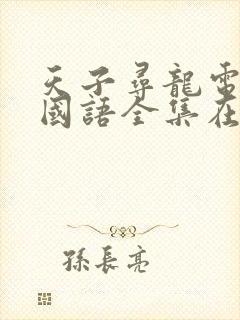 天子尋龍電
國語全集在
孫長亮